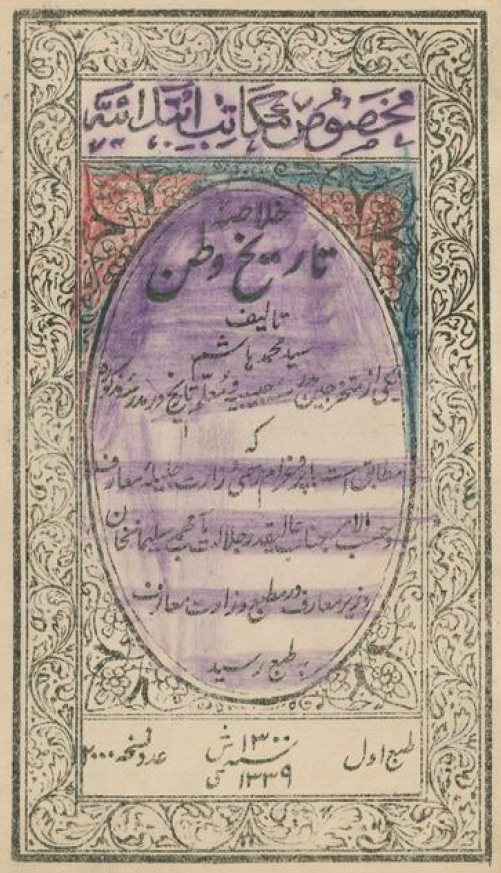 مخصوص مکاتب ابتدائیه
خلاصهٔ
تاریخ وطن
تالیف
سید محمد هاشم
یکی از متخرجین حبیبیه و معلم تاریخ در مدرسه
که
مطابق است با پروغرام رسمی وزارت جلیلهٔ معارف
و حسب الامر جناب عالیقدر جلالت مآب محمد سلیمانخان
وزیر معارف در مطبع وزارت معارف
به طبع رسید
طبع اول
۱۳۰۰ ش
سنه
۱۳۳۹
عدد نسخه ۲۰۰۰